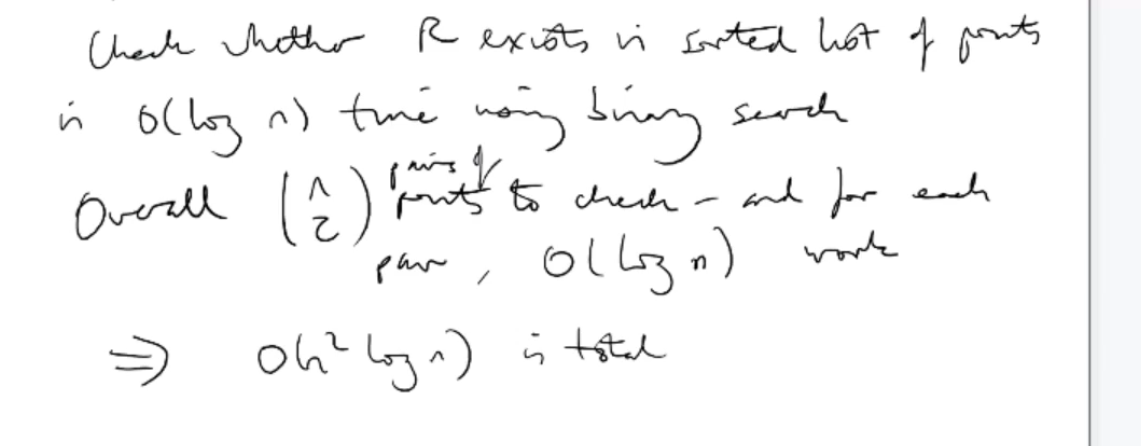 Check whether R exists in sorted list of points
in O(log n) time using binary search
Overall (n 2) pairs of points to check - and for each
pair, O(log n) work
⇒ O(n² log n) in total